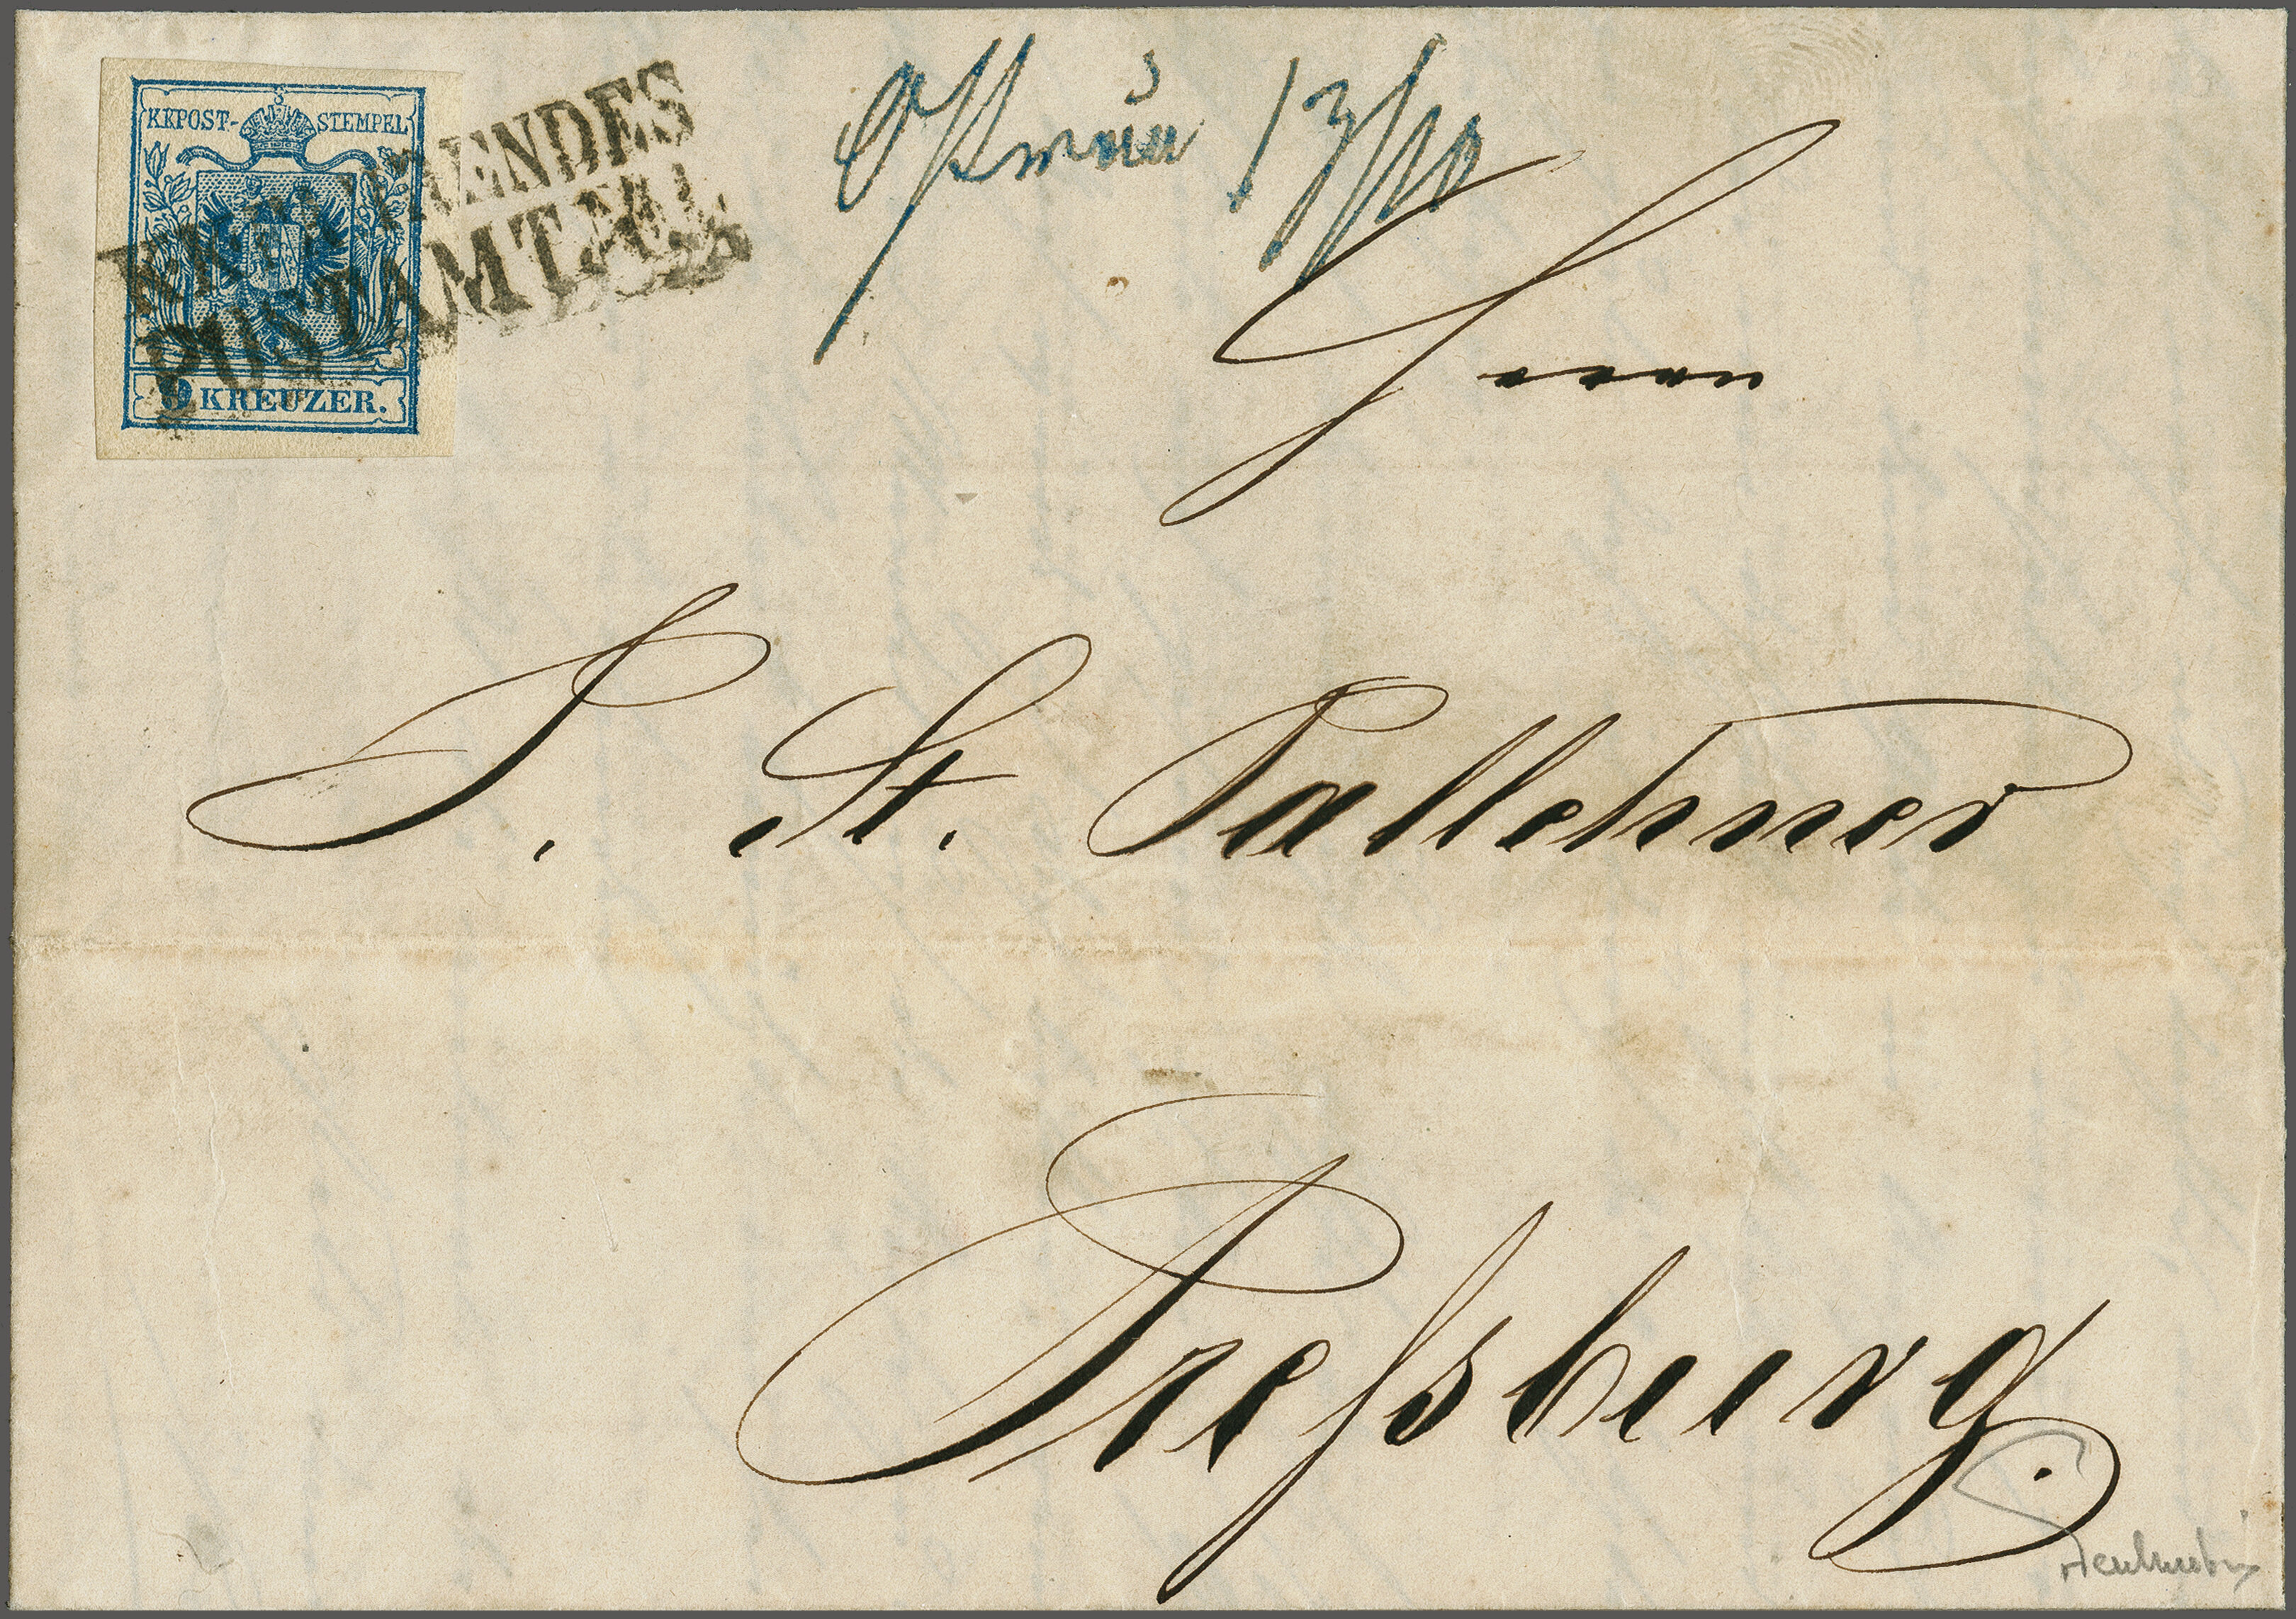 KKPOST-STEMPEL
9 KREUZER.
FAHRENDES
POSTAMT
13/10
Herrn
J. St. Pallehner
Preßburg.